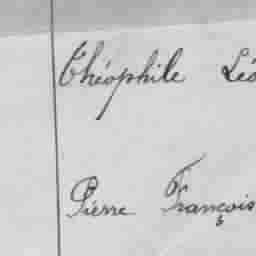 Théophile Léo
Pierre François